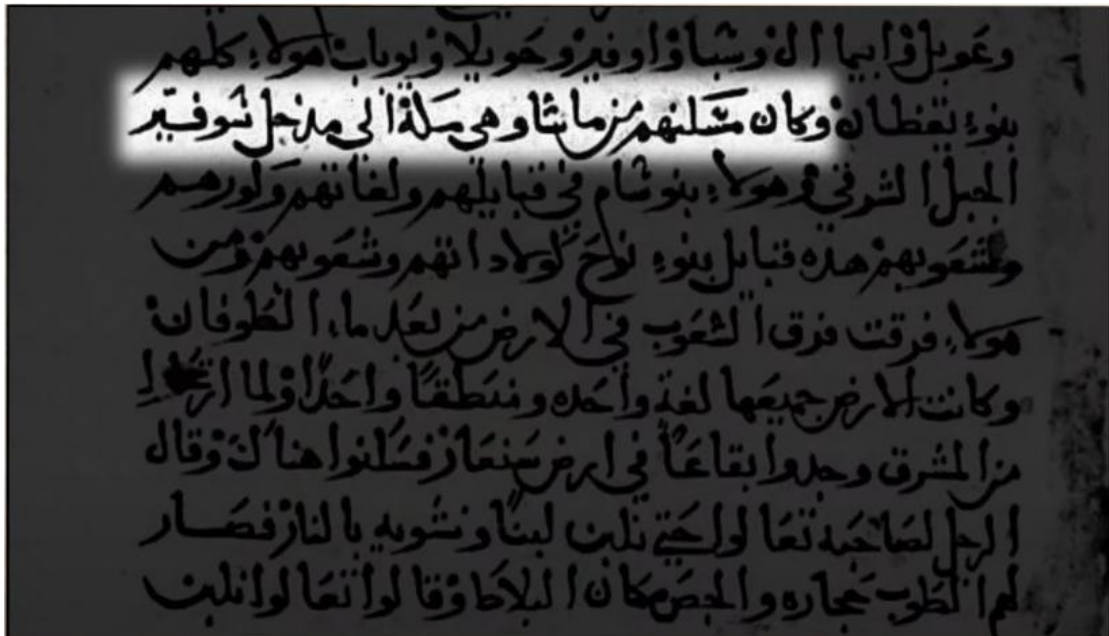 وعوبل وابيما ال وشبا واوفير وحويلا ويوباب هولاء كلهم
بنوء يقظان وكان مسكنهم من ماشا وهي مكة الى مدخل شوفير
الجبل الشرقي وهولاء بنو شام في قبايلهم ولغاتهم وكورهم
وشعوبهم هذه قبايل بنوء نوح كولاداتهم وشعوبهم ومن
هولاء فرقت فرق الشعوب في الارض من بعد ماء الطوفان
وكانت الارض جميعها لغة واحده ومنطقًا واحدًا ولما
من المشرق وجدوا بقاعًا في ارض سنعار فسكنوا هناك وقال
الرجل لصاحبه تعالوا حتي نلبن لبنًا ونشويه بالنار فصار
لهم الطوب حجاره والجص مكان البلاط وقالوا تعالوا نلبن